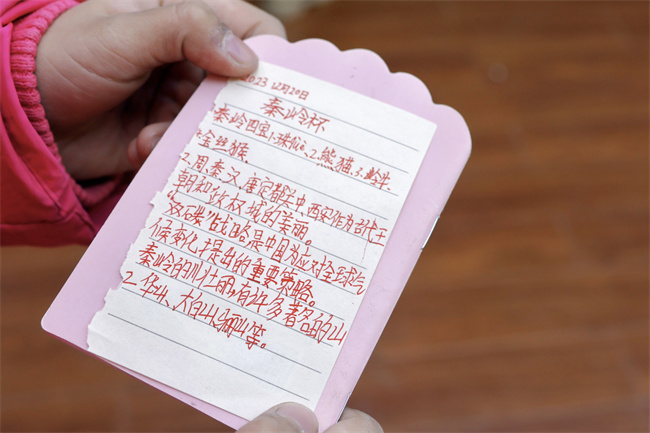 2023 12月20日
秦岭杯
秦岭四宝1.珠 2.熊猫、3.羚牛、
金丝猴、
2.周、秦、汉、唐定都关中,西安作为古代王
朝和政权城的美丽。
"双碳"战略是中国为应对全球气
候变化提出的重要策略。
秦岭的川壮丽,有许多著名的山
2.华山、太白山、骊山等。